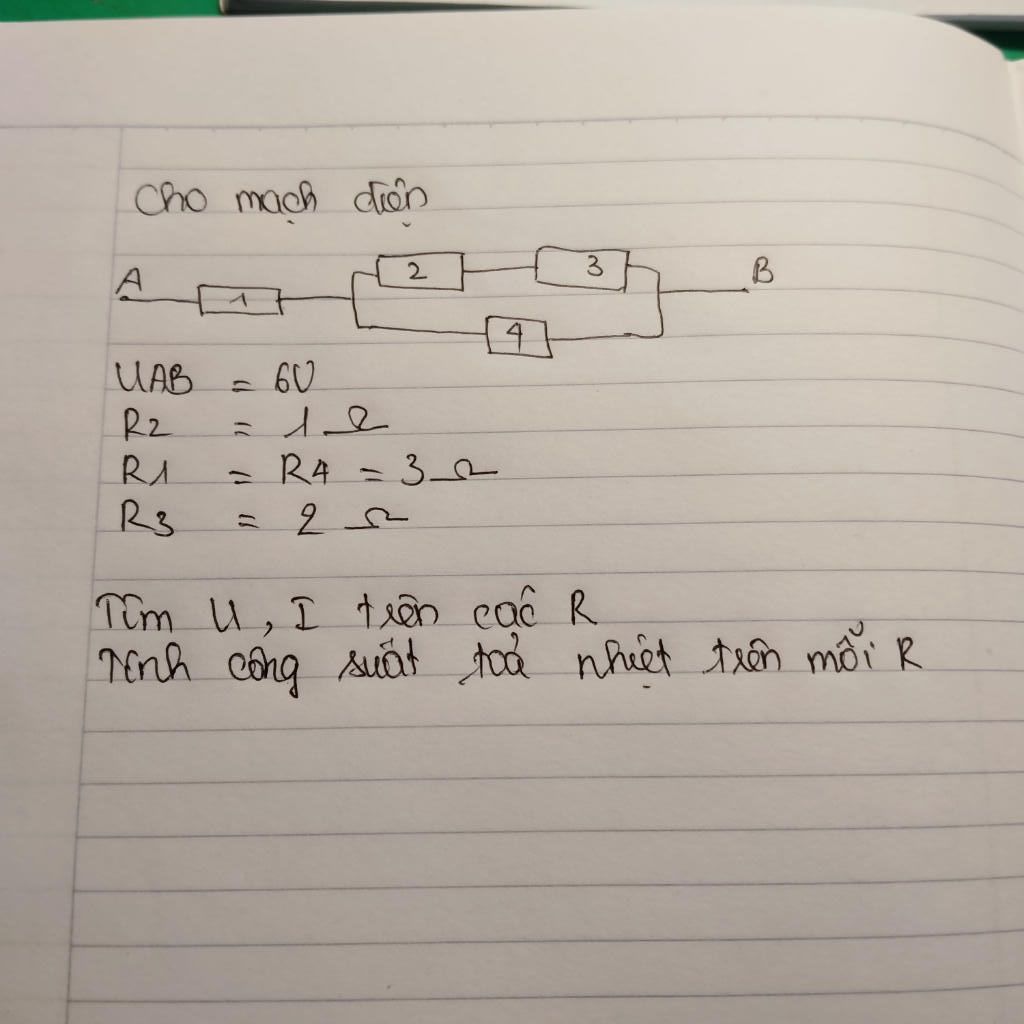 Cho mạch điện
A 1 2 3 4 B
UAB = 6V
R2 = 1 Ω
R1 = R4 = 3 Ω
R3 = 2 Ω
Tìm U, I trên các R
Tính công suất toả nhiệt trên mỗi R